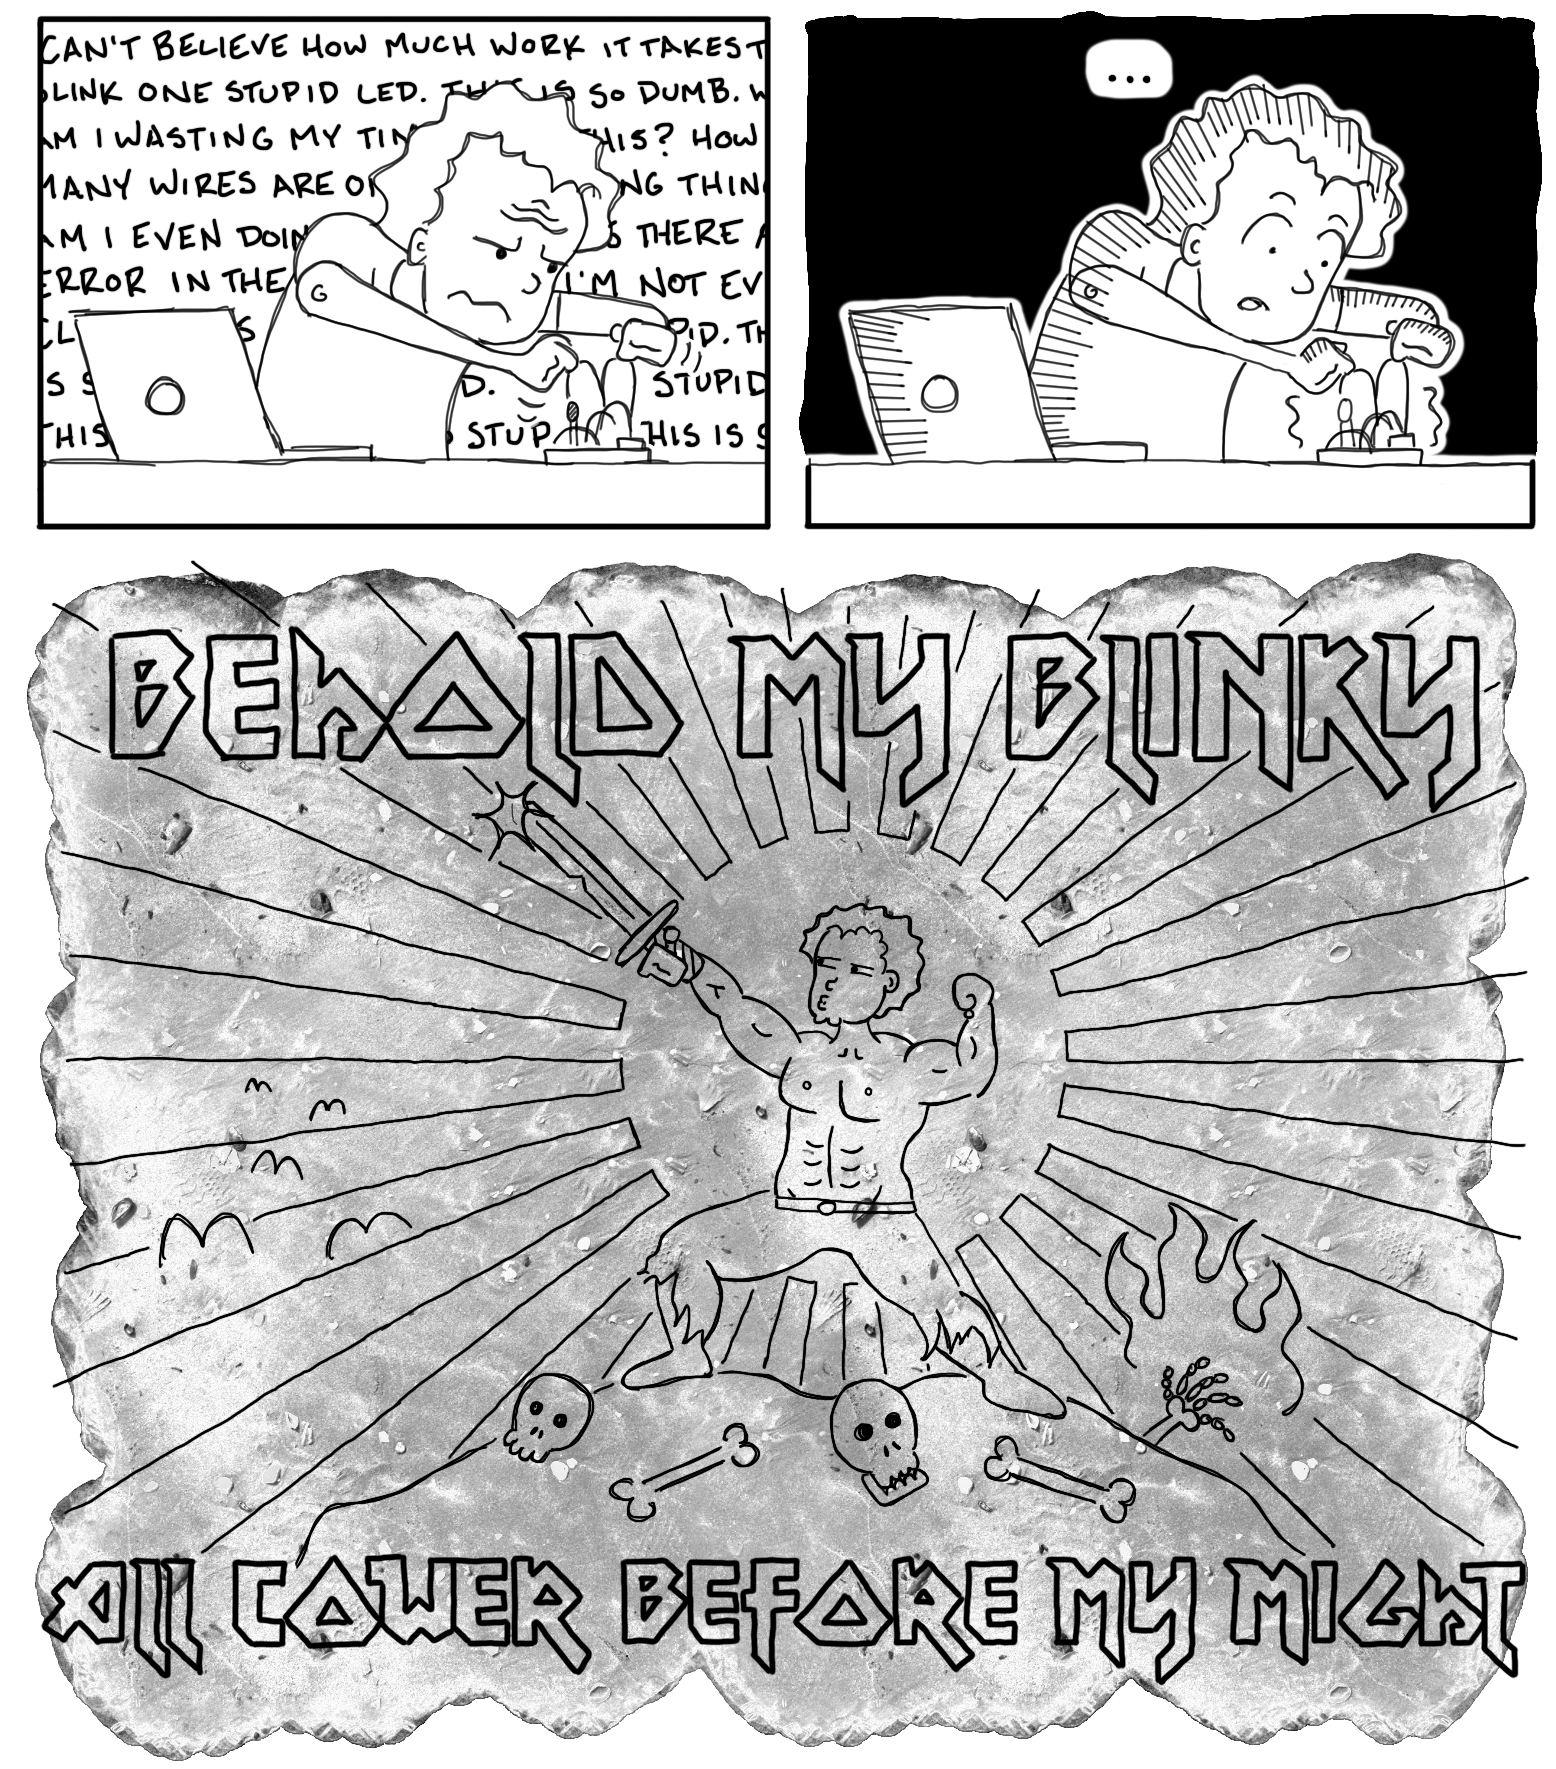 CAN'T BELIEVE HOW MUCH WORK IT TAKES T
LINK ONE STUPID LED. THIS IS SO DUMB. W
AM I WASTING MY TIM HIS? HOW
MANY WIRES ARE O NG THIN
AM I EVEN DOIN S THERE A
ERROR IN THE I'M NOT EV
CL S PID. TH
S S D. STUPID
THIS STUP HIS IS S
...
BEHOLD MY BLINKY
ALL COWER BEFORE MY MIGHT